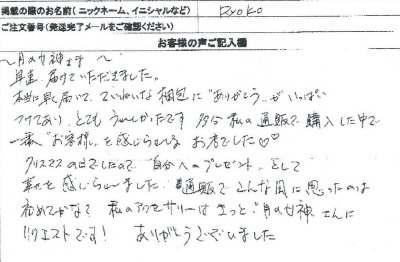 掲載の際のお名前(ニックネーム、イニシャルなど) Ryoko
ご注文番号(発送完了メールをご確認ください)
お客様の声ご記入欄
〜月の女神さま〜
早速 届けていただきました。
本当に早く届いて、ていねいな梱包に"ありがとう"がいっぱい
つけてあり、とてもうれしかったです 多分 私の通販で購入した中で
一番"お客様"を感じられる お店でした♡♡
クリスマスの日でしたので "自分へのプレゼント"として
幸せを感じられました 通販でこんな風に思ったのは
初めてかなて 私のアクセサリーはきっと"月の女神"さんに
リクエストです! ありがとうございました